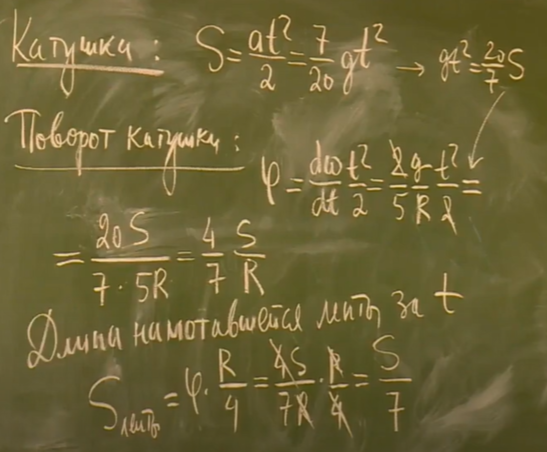 Катушка: S = at²/2 = 7/20 gt² → gt² = 20/7 S
Поворот катушки:
φ = dω/dt t²/2 = 2/5 g/R t²/2 =
= 20S/(7·5R) = 4/7 S/R
Длина намотавшейся ленты за t
Sленты = φ · R/4 = 4S/7R · R/4 = S/7